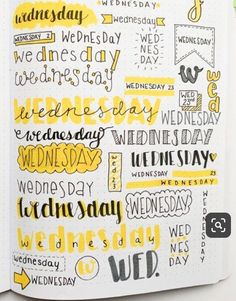 wednesday
WEDNESDAY
WEDNESDAY 23
WEDNESDAY
WED
NES
DAY
WEDNESDAY
wednesday
wednesday
w
wed
wednesday
WED
wednesday
wednesday
WEDNESDAY
WEDNESDAY
wed
23
WEDNESDAY
WEDNESDAY 23
WEDNESDAY
wednesday
wednesday
WEDNESDAY
WEDNESDAY
wednesday
WED
NES
DAY
wednesday
w
WED.
wednesday